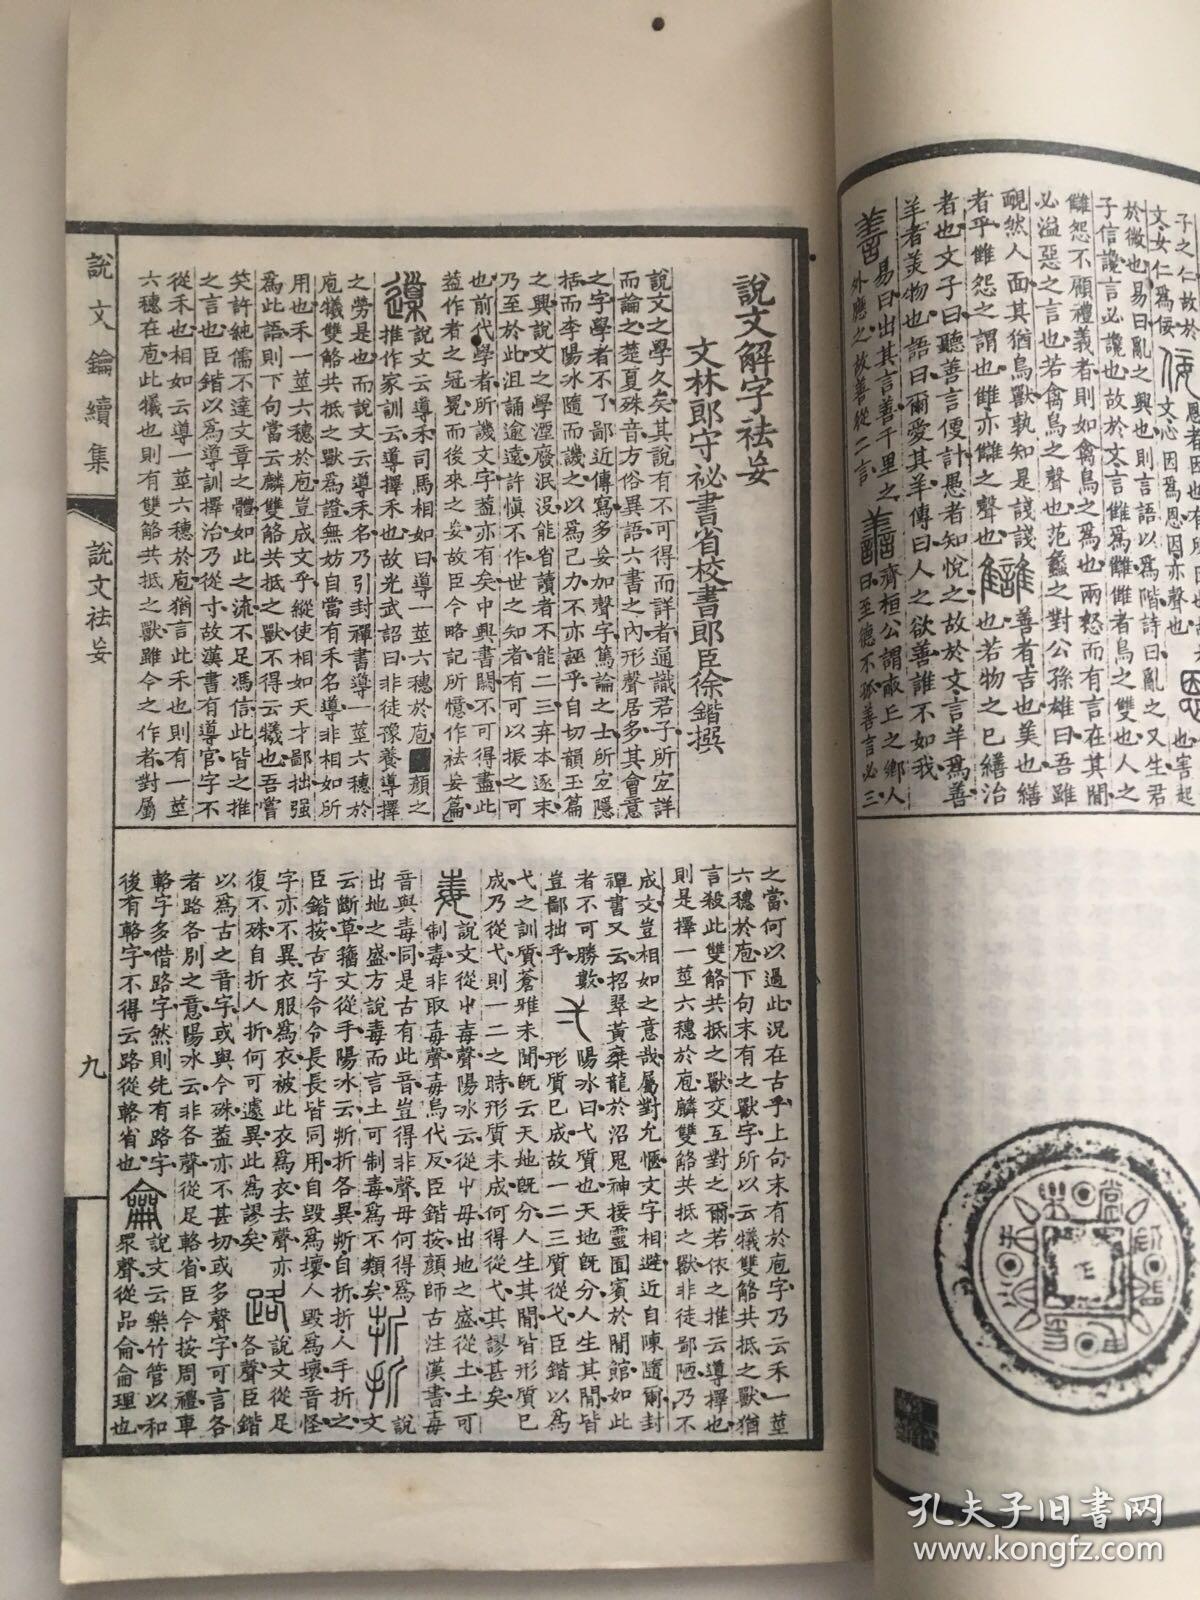 子之仁故於
文女仁爲佞
於微也易曰亂之興也則言語以爲階詩曰亂之又生君
子信讒言必讒也故於文言
讎怨不顧禮義者則如禽鳥之爲也兩怒而有言在其間
必溢惡之言也若禽鳥之聲也范蠡之對公孫雄曰吾雖
靦然人面其猶鳥獸孰知是諓諓
善者吉也美也繕
者乎讎怨之謂也讎亦讎之聲也
也若物之已繕治
者也文子曰聽善言便計愚者知悅之故於文言羊爲善
羊者美物也語曰爾愛其羊傳曰人之欲善誰不如我
易曰出其言善千里之
外應之故善從二言
齊桓公謂
丘之鄉人
曰至德不孤善言必三
說文解字祛妄
文林郎守祕書省校書郎臣徐鍇撰
說文之學久矣其說有不可得而詳者通識君子所宜詳
而論之楚夏殊音方俗異語六書之內形聲居多其會意
之字學者不了鄙近傳寫多妄加聲字篤論之士所宜隱
括而李陽冰隨而譏之以爲己力不亦誣乎自切韻玉篇
之興說文之學湮廢泯沒能省讀者不能二三棄本逐末
乃至於此沮誦逾遠許慎不作世之知者有可以振之可
也前代學者所譏文字蓋亦有矣中興書闕不可得盡此
蓋作者之冠冕而後來之妄故臣今略記所憶作祛妄篇
說文云導禾司馬相如曰導一莖六穗於庖
顏之
推作家訓云導擇禾也故光武詔曰非徒豫養導擇
之勞是也而說文云導禾名乃引封禪書導一莖六穗於
庖犧雙觡共抵之獸爲證無妨自當有禾名導非相如所
用也禾一莖六穗於庖豈成文乎縱使相如天才鄙拙强
爲此語則下句當云麟雙觡共抵之獸不得云犧也吾嘗
笑許純儒不達文章之體如此之流不足馮信此皆之推
之言也臣鍇以爲導訓擇治乃從寸故漢書有導官字不
從禾也相如云導一莖六穗於庖猶言此禾也則有一莖
六穗在庖此犧也則有雙觡共抵之獸雖今之作者對屬
之當何以過此況在古乎上句末有於庖字乃云禾一莖
六穗於庖下句末有之獸字所以云犧雙觡共抵之獸猶
言殺此雙觡共抵之獸交互對之爾若依之推云導擇也
則是擇一莖六穗於庖麟雙觡共抵之獸非徒鄙陋乃不
成文豈相如之意哉屬對允愜文字相避近自陳隨爾封
禪書又云招翠黃乘龍於沼鬼神接靈圄賓於閒館如此
者不可勝數
陽冰曰弋質也天地既分人生其間皆
豈鄙拙乎
形質已成故一二三質從弋臣鍇以爲
弋之訓質蒼雅未聞既云天地既分人生其間皆形質已
成乃從弋則一二之時形質未成何得從弋其謬甚矣
說文從屮毒聲陽冰云從屮毋出地之盛從土土可
制毒非取毒聲毒烏代反臣鍇按顏師古注漢書毒
音與毒同是古有此音豈得非聲毋何得爲
出地之盛方說毒而言土可制毒爲不類矣
折 折
說
文
云斷草籒文從手陽冰云斨折各異斨自折折人手折之
臣鍇按古字令令長長皆同用自毀爲壞人毀爲壞音怪
字亦不異衣服爲衣被此衣爲衣去聲亦
說文從足
復不殊自折人折何可遽異此爲謬矣
路
各聲臣鍇
以爲古之音字或與今殊蓋亦不甚切或多聲字可言各
者路各別之意陽冰云非各聲從足輅省臣今按周禮車
輅字多借路字然則先有路字
後有輅字不得云路從輅省也
龠
說文云樂竹管以和
眾聲從品侖侖理也
說文鑰續集
說文祛妄
九
孔夫子旧书网
www.kongfz.com